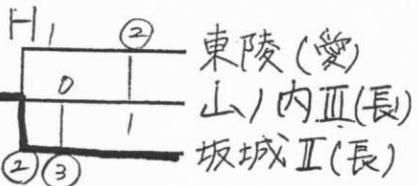 H 1 ② 東陵(愛)
0 1 山ノ内Ⅲ(長)
② ③ 坂城Ⅱ(長)